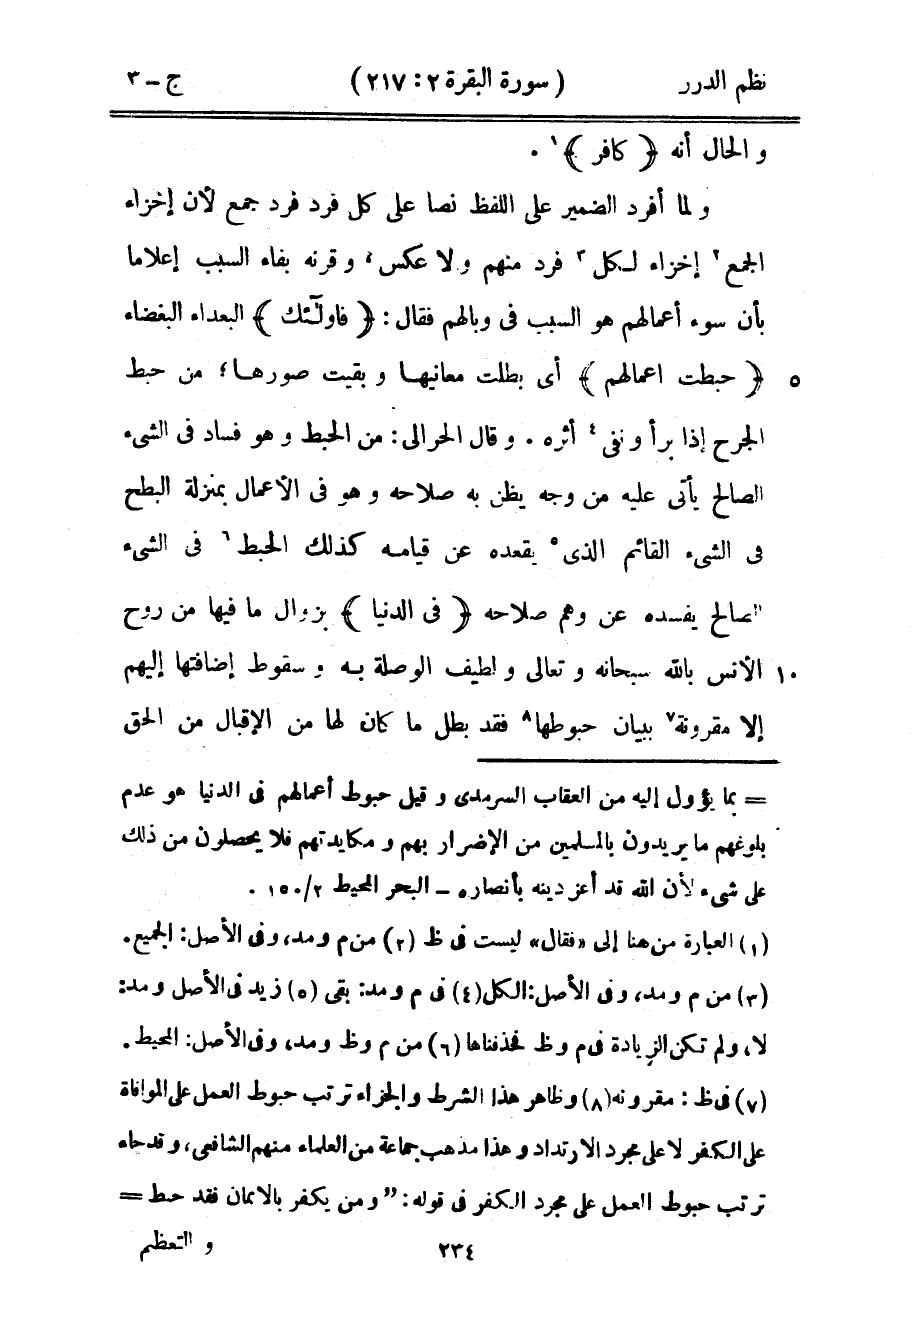 نظم الدرر ( سورة البقرة ٢ : ٢١٧ ) ج – ٣
و الحال أنه ﴿ كافر ﴾١ .
و لما أفرد الضمير على اللفظ نصا على كل فرد فرد جمع لأن إخزاء
الجمع٢ إخزاء لكل٣ فرد منهم و لا عكس، و قرنه بفاء السبب إعلاما
بأن سوء أعمالهم هو السبب فى وبالهم فقال : ﴿ فاولٰٓئك ﴾ البعداء البغضاء
٥ ﴿ حبطت اعمالهم ﴾ أى بطلت معانيها و بقيت صورها ؛ من حبط
الجرح إذا برأ و نفى٤ أثره . و قال الحرالى : من الحبط و هو فساد فى الشىء
الصالح يأتى عليه من وجه يظن به صلاحه و هو فى الأعمال بمنزلة البطح
فى الشىء القائم الذى٥ يقعده عن قيامه كذلك الحبط٦ فى الشىء
الصالح يفسده عن وهم صلاحه ﴿ فى الدنيا ﴾ بزوال ما فيها من روح
١٠ الأنس بالله سبحانه و تعالى و لطيف الوصلة به و سقوط إضافتها إليهم
إلا مقرونة٧ ببيان حبوطها٨ فقد بطل ما كان لها من الإقبال من الحق
= بما يؤول إليه من العقاب السرمدى و قيل حبوط أعمالهم فى الدنيا هو عدم
بلوغهم ما يريدون بالمسلمين من الإضرار بهم و مكايدتهم فلا يحصلون من ذلك
على شىء لأن الله قد أعز دينه بأنصاره – البحر المحيط ٢/١٥٠ .
(١) العبارة من هنا إلى «فقال» ليست فى ظ (٢) من م و مد، وفى الأصل: الجميع .
(٣) من م و مد، وفى الأصل: الكل (٤) فى م و مد: بقى (٥) زيد فى الأصل و مد:
لا، و لم تكن الزيادة فى م و ظ فحذفناها (٦) من م وظ ومد، وفى الأصل: المحيط .
(٧) فى ظ : مقرونه (٨) و ظاهر هذا الشرط و الجزاء ترتب حبوط العمل على الموافاة
على الكفر لا على مجرد الارتداد و هذا مذهب جماعة من العلماء منهم الشافعى، و قد جاء
ترتب حبوط العمل على مجرد الكفر فى قوله : " و من يكفر بالايمان فقد حبط =
٢٣٤ و التعظيم